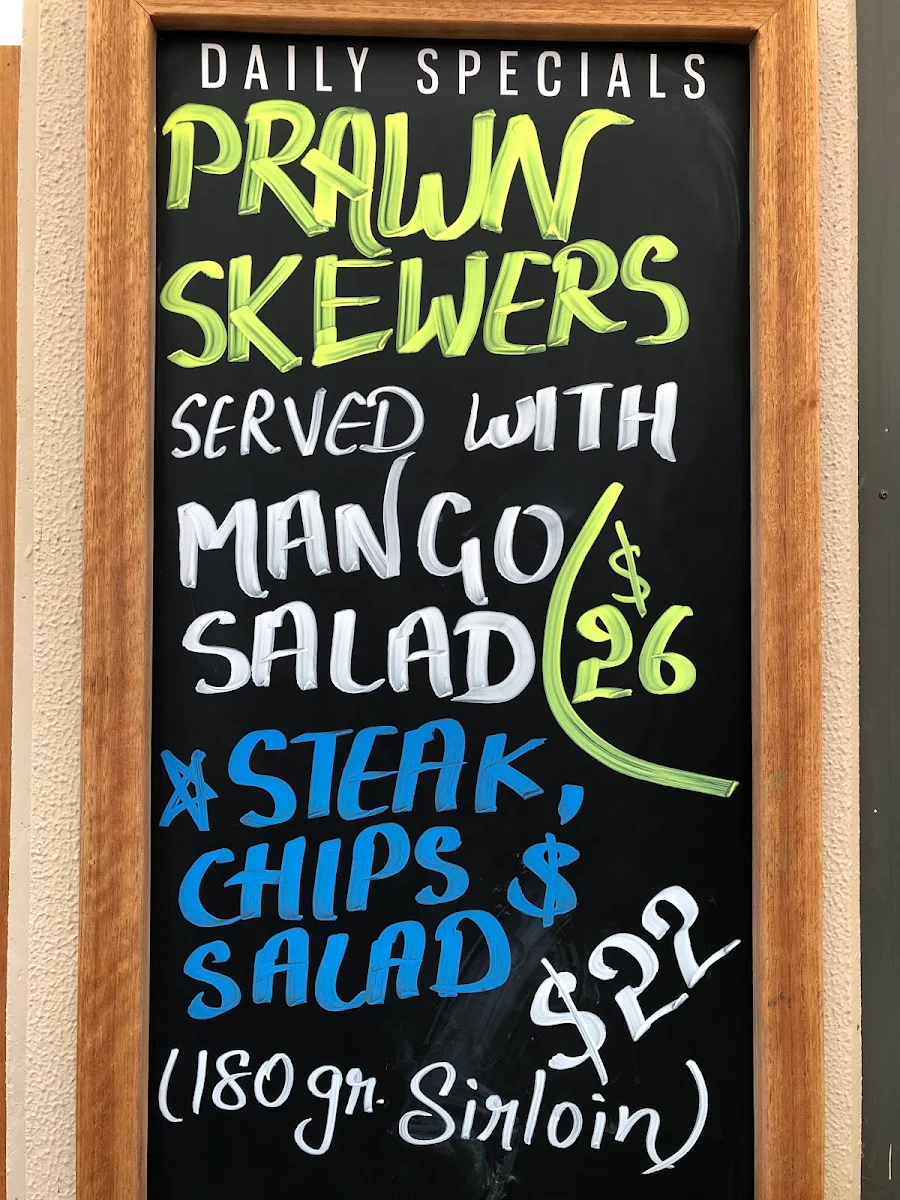 DAILY SPECIALS
PRAWN
SKEWERS
SERVED WITH
MANGO
SALAD
$
26
STEAK,
CHIPS $
SALAD
$22
(180 gr. Sirloin)